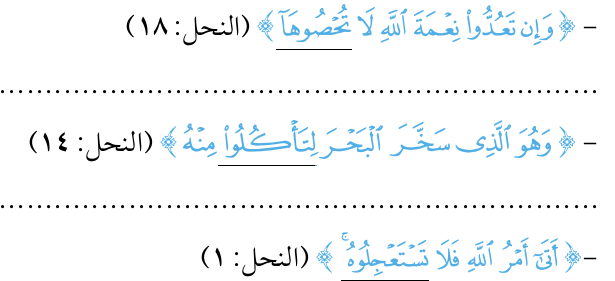 – ﴿ وَإِن تَعُدُّواْ نِعْمَةَ ٱللَّهِ لَا تُحْصُوهَآ ﴾ (النحل: ١٨)
................................................................
– ﴿ وَهُوَ ٱلَّذِى سَخَّرَ ٱلْبَحْرَ لِتَأْكُلُواْ مِنْهُ ﴾ (النحل: ١٤)
................................................................
– ﴿ أَتَىٰٓ أَمْرُ ٱللَّهِ فَلَا تَسْتَعْجِلُوهُ ۚ ﴾ (النحل: ١)